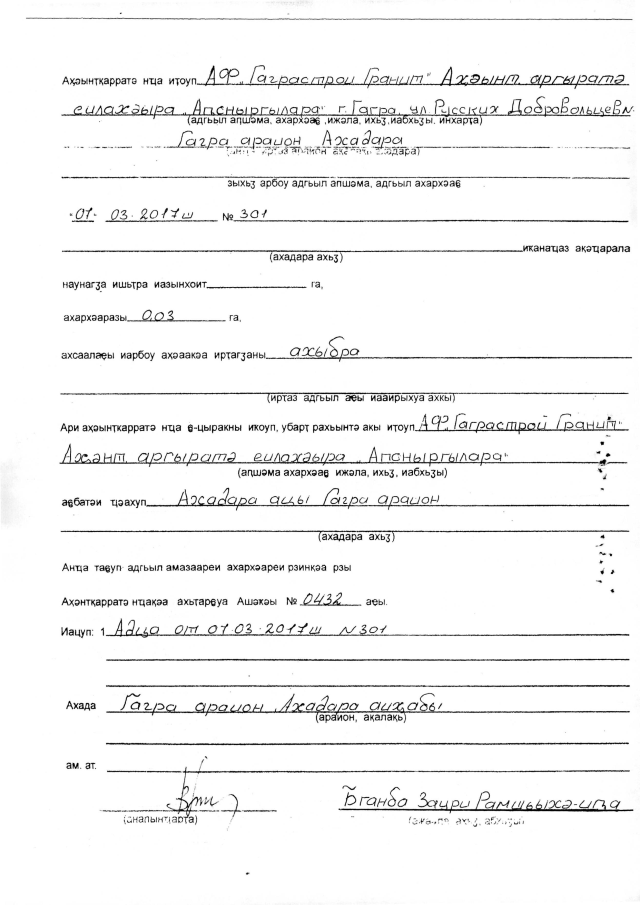 Аҳәынҭқарратә нҵа иҭоуп АФ „Гаграстрои Гранит" Аҳәынҭ аргыратә
еилахәыра „Аԥсныргылара" г. Гагра, ул. Русских Добровольцев
(адгьыл аԥшәма, ахархәаҩ ,ижәла, ихьӡ,иабхьӡы, инхарҭа)
Гагра араион Ахадара
зыхьӡ арбоу адгьыл аԥшәма, адгьыл ахархәаҩ
"01" 03. 2017ш № 301
иҟанаҵаз аҟәҵарала
(ахадара ахьӡ)
наунагӡа ишьҭра иазынхоит га,
ахархәаразы 0,03 га,
ахсаалаҿы иарбоу аҳәаақәа ирҭагӡаны ахыбра
(иҭаз адгьыл аҿы иааирыхуа ахкы)
Ари аҳәынҭқарратә нҵа ҩ-цыракны иҟоуп, убарҭ рахьынтә акы иҭоуп АФ „Гаграстрой Гранит"
Аҳәнҭ аргыратә еилахәыра „Аԥсныргылара"
(аԥшәма ахархәаҩ ижәла, ихьӡ, иабхьӡы)
аҩбатәи ҵәахуп Ахадара аҿы Гагра араион
(ахадара ахьӡ)
Анҵа ҭаҩуп адгьыл амазаареи ахархәареи рзинқәа рзы
Аҳәнҭқарратә нҵақәа ахьҭарҩуа Ашәҟәы № 0432 аҿы.
Иаҵуп: 1 Адҵа от 01 03. 2017ш N 301
Ахада Гагра араион Ахадара аиҳабы
(араион, ақалақь)
ам. аҭ.
Бганба Заури Рамшьыхә-иԥа
(анапынҵарҭа)